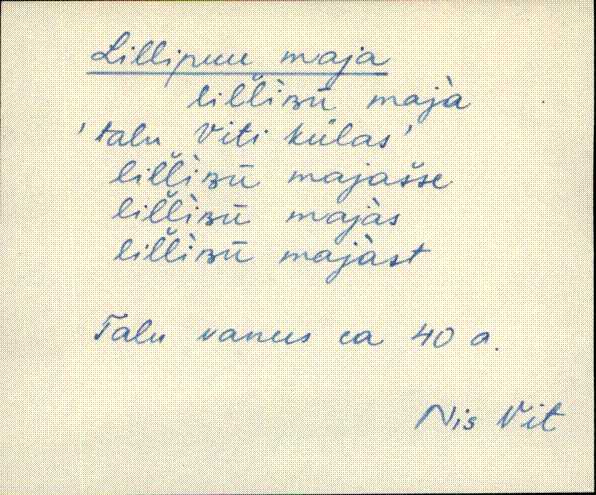 Lillipuu maja
lil̆l̆ìʙū majà
'talu Viti külas'
lil̆l̆ìʙū majašse
lil̆l̆ìʙū majàs
lil̆l̆ìʙū majàst
Talu vanus ca 40 a.
Nis Vit